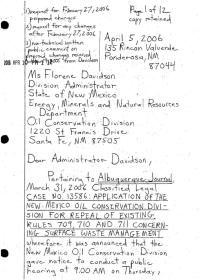 1) request for February 27, 2006
proposed changes
2) request for any changes
after February 27, 2006
3) no technical written
public comment on
proposed changes received
from Davidson
Page 1 of 12
copy retained
April 5, 2006
135 Rincon Valverde
Ponderosa, NM
87044
Ms Florene Davidson
Division Administrator
State of New Mexico
Energy, Minerals and Natural Resources
Department
Oil Conservation Division
1220 St Francis Drive
Santa Fe, NM 87505
Dear Administrator Davidson,
Pertaining to Albuquerque Journal
March 31, 2006 Classified Legal
CASE NO. 13586: APPLICATION OF THE
NEW MEXICO OIL CONSERVATION DIVI-
SION FOR REPEAL OF EXISTING
RULES 709, 710 AND 711 CONCERN-
ING SURFACE WASTE MANAGEMENT
wherefore it was announced that the
New Mexico Oil Conservation Division
gave notice to conduct a public
hearing at 9:00 AM on Thursday,